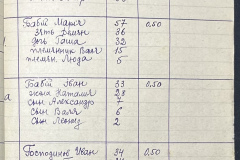 Бабій Марія 57 0,50
зять Демян 36
дочь Гаша 32
племянник Ваня 15
племян. Люда 6
Бабій Иван 33 0,50
жена Наталия 28
сын Александр 7
сын Ваня 6
сын Леонид 2
Господинов Иван 34 0,50